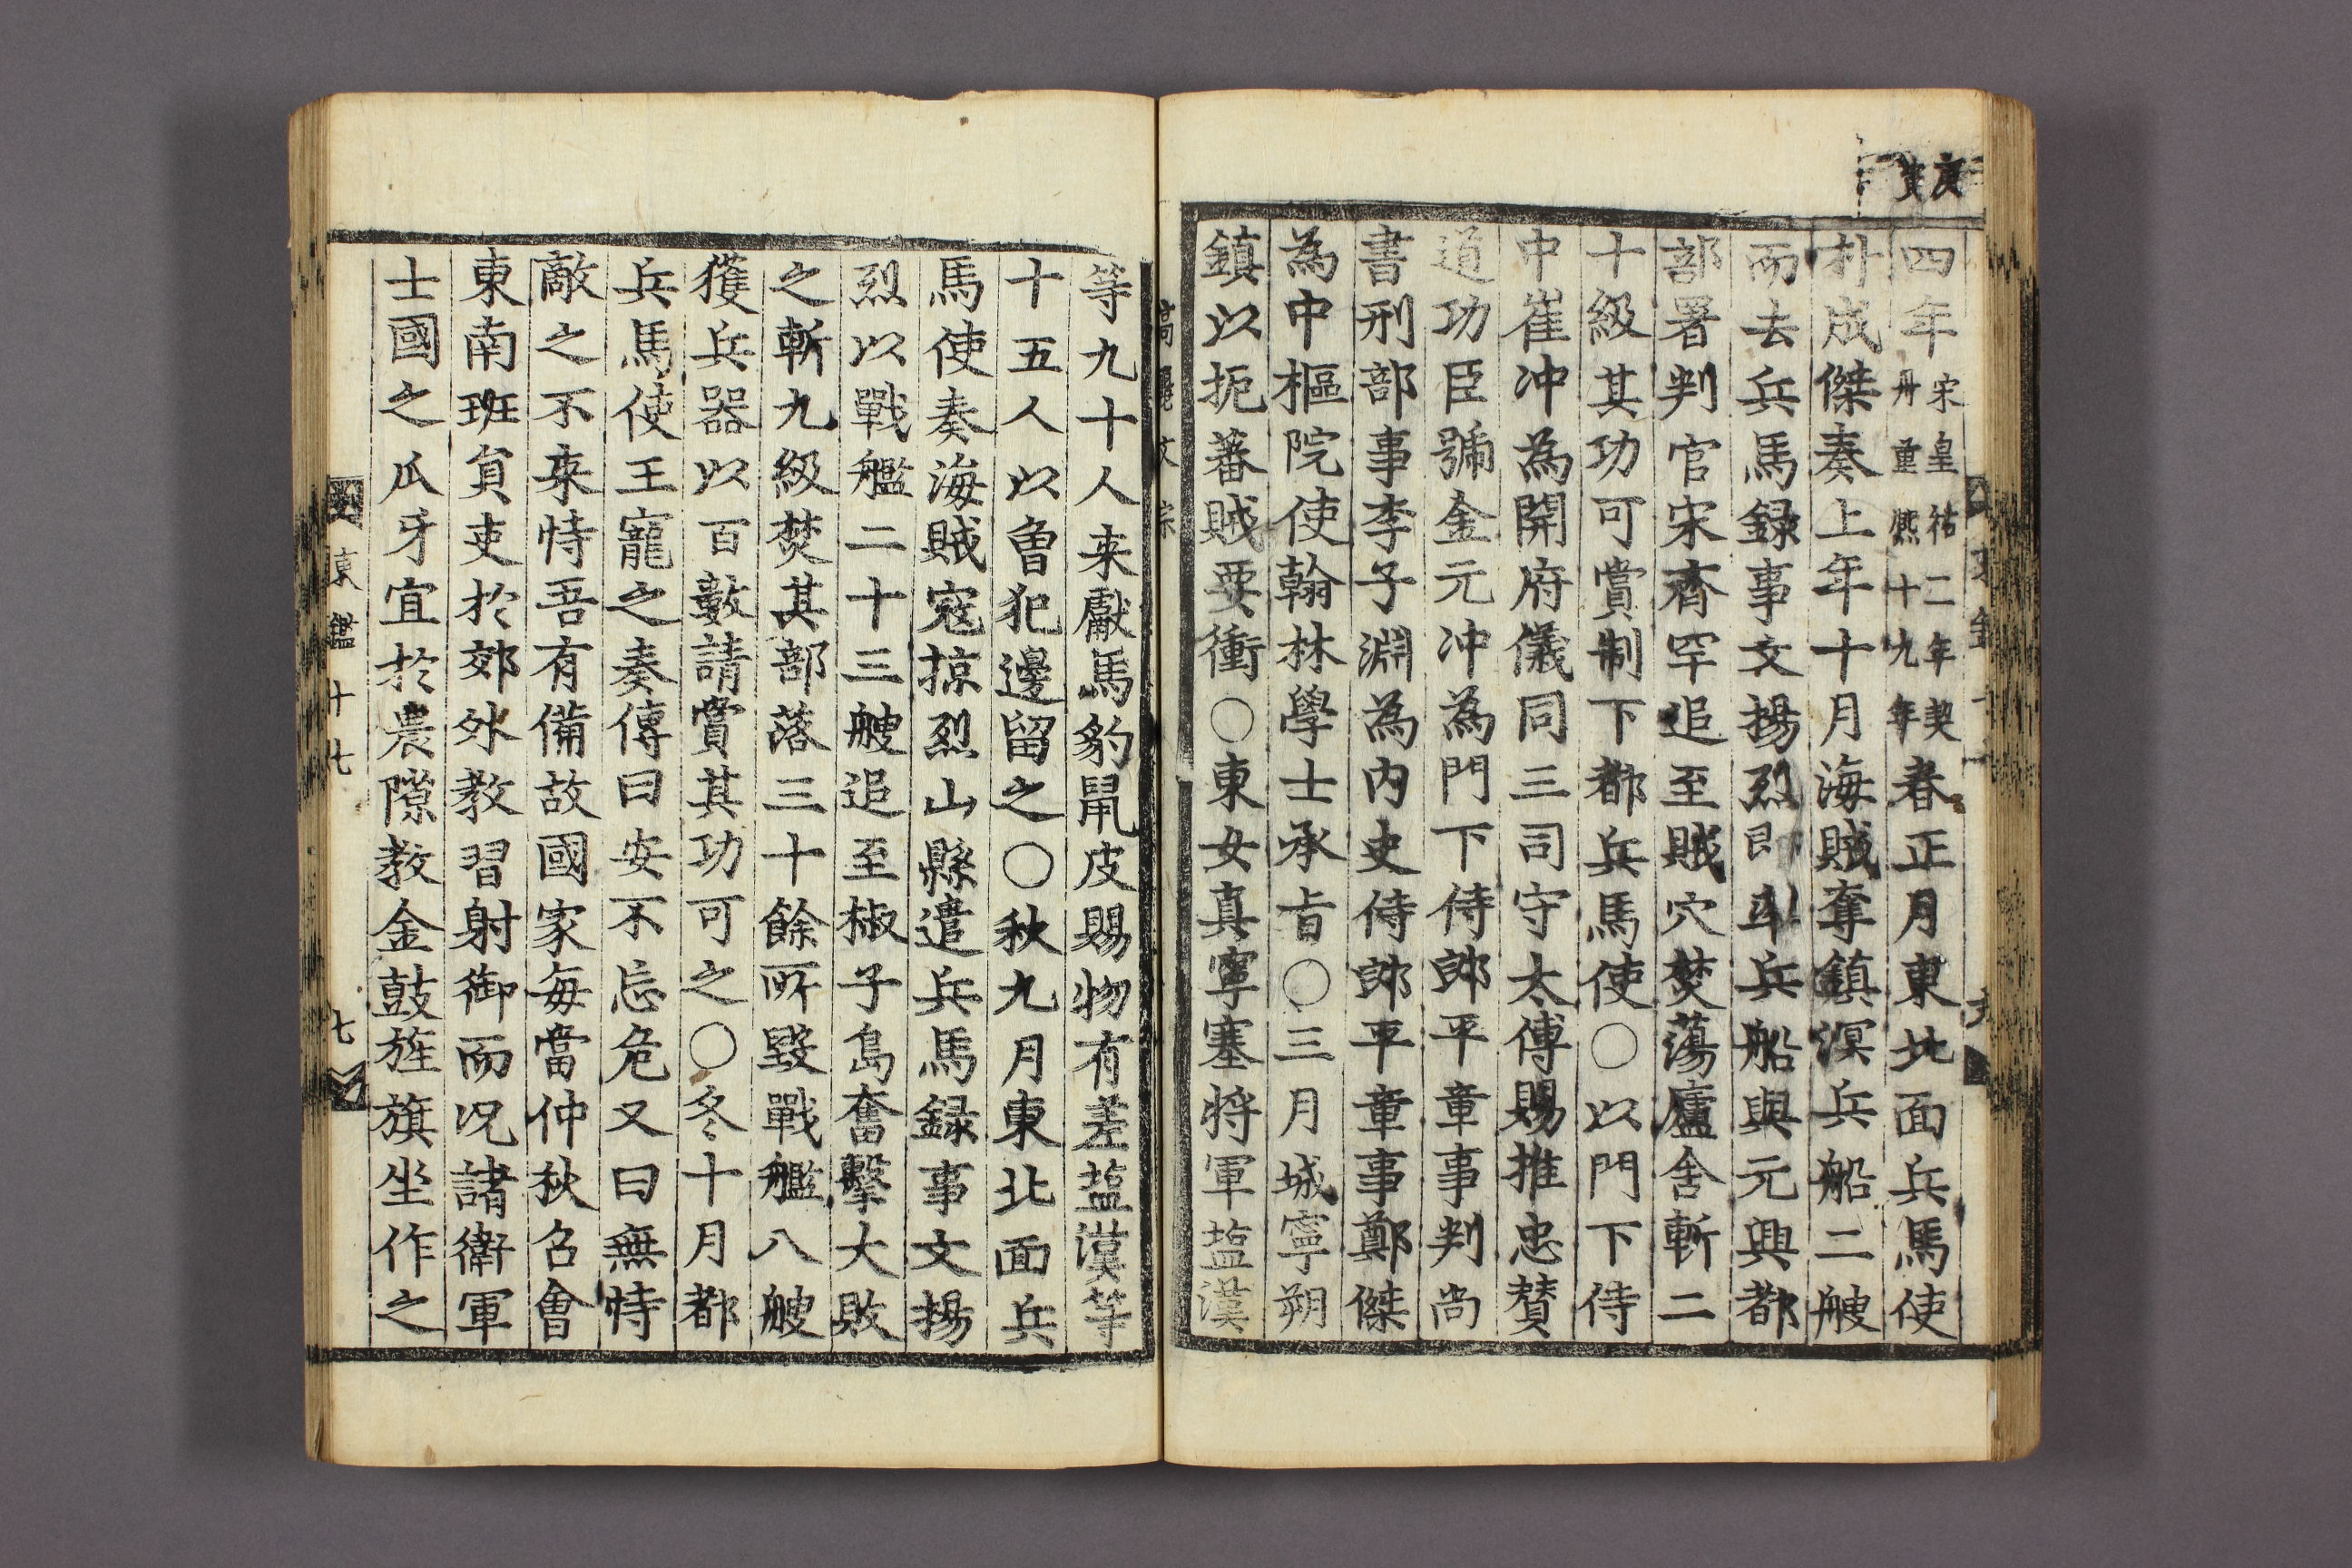 庚寅
四年宋皇祐二年契丹重熈十九年春正月東北面兵馬使
朴成傑奏上年十月海賊奪鎮溟兵船二艘
而去兵馬録事文揚烈即率兵船與元興都
部署判官宋齊罕追至賊穴焚蕩廬舍斬二
十級其功可賞制下都兵馬使○以門下侍
中崔冲為開府儀同三司守太傅賜推忠贊
道功臣號金元冲為門下侍郎平章事判尚
書刑部事李子淵為内史侍郎平章事鄭傑
為中樞院使翰林學士承旨○三月城寧朔
鎮以扼蕃賊要衝○東女真寧塞将軍塩漢
等九十人来獻馬豹鼠皮賜物有差塩漢等
十五人以曾犯邊留之○秋九月東北面兵
馬使奏海賊寇掠烈山縣遣兵馬録事文揚
烈以戰艦二十三艘追至椒子島奮擊大敗
之斬九級焚其部落三十餘所毀戰艦八艘
獲兵器以百數請賞其功可之○冬十月都
兵馬使王寵之奏傳曰安不忘危又曰無恃
敵之不来恃吾有備故國家每當仲秋召會
東南班員吏於郊外教習射御而况諸衛軍
士國之瓜牙宜於農隙教金鼓旌旗坐作之
東鑑十七
七